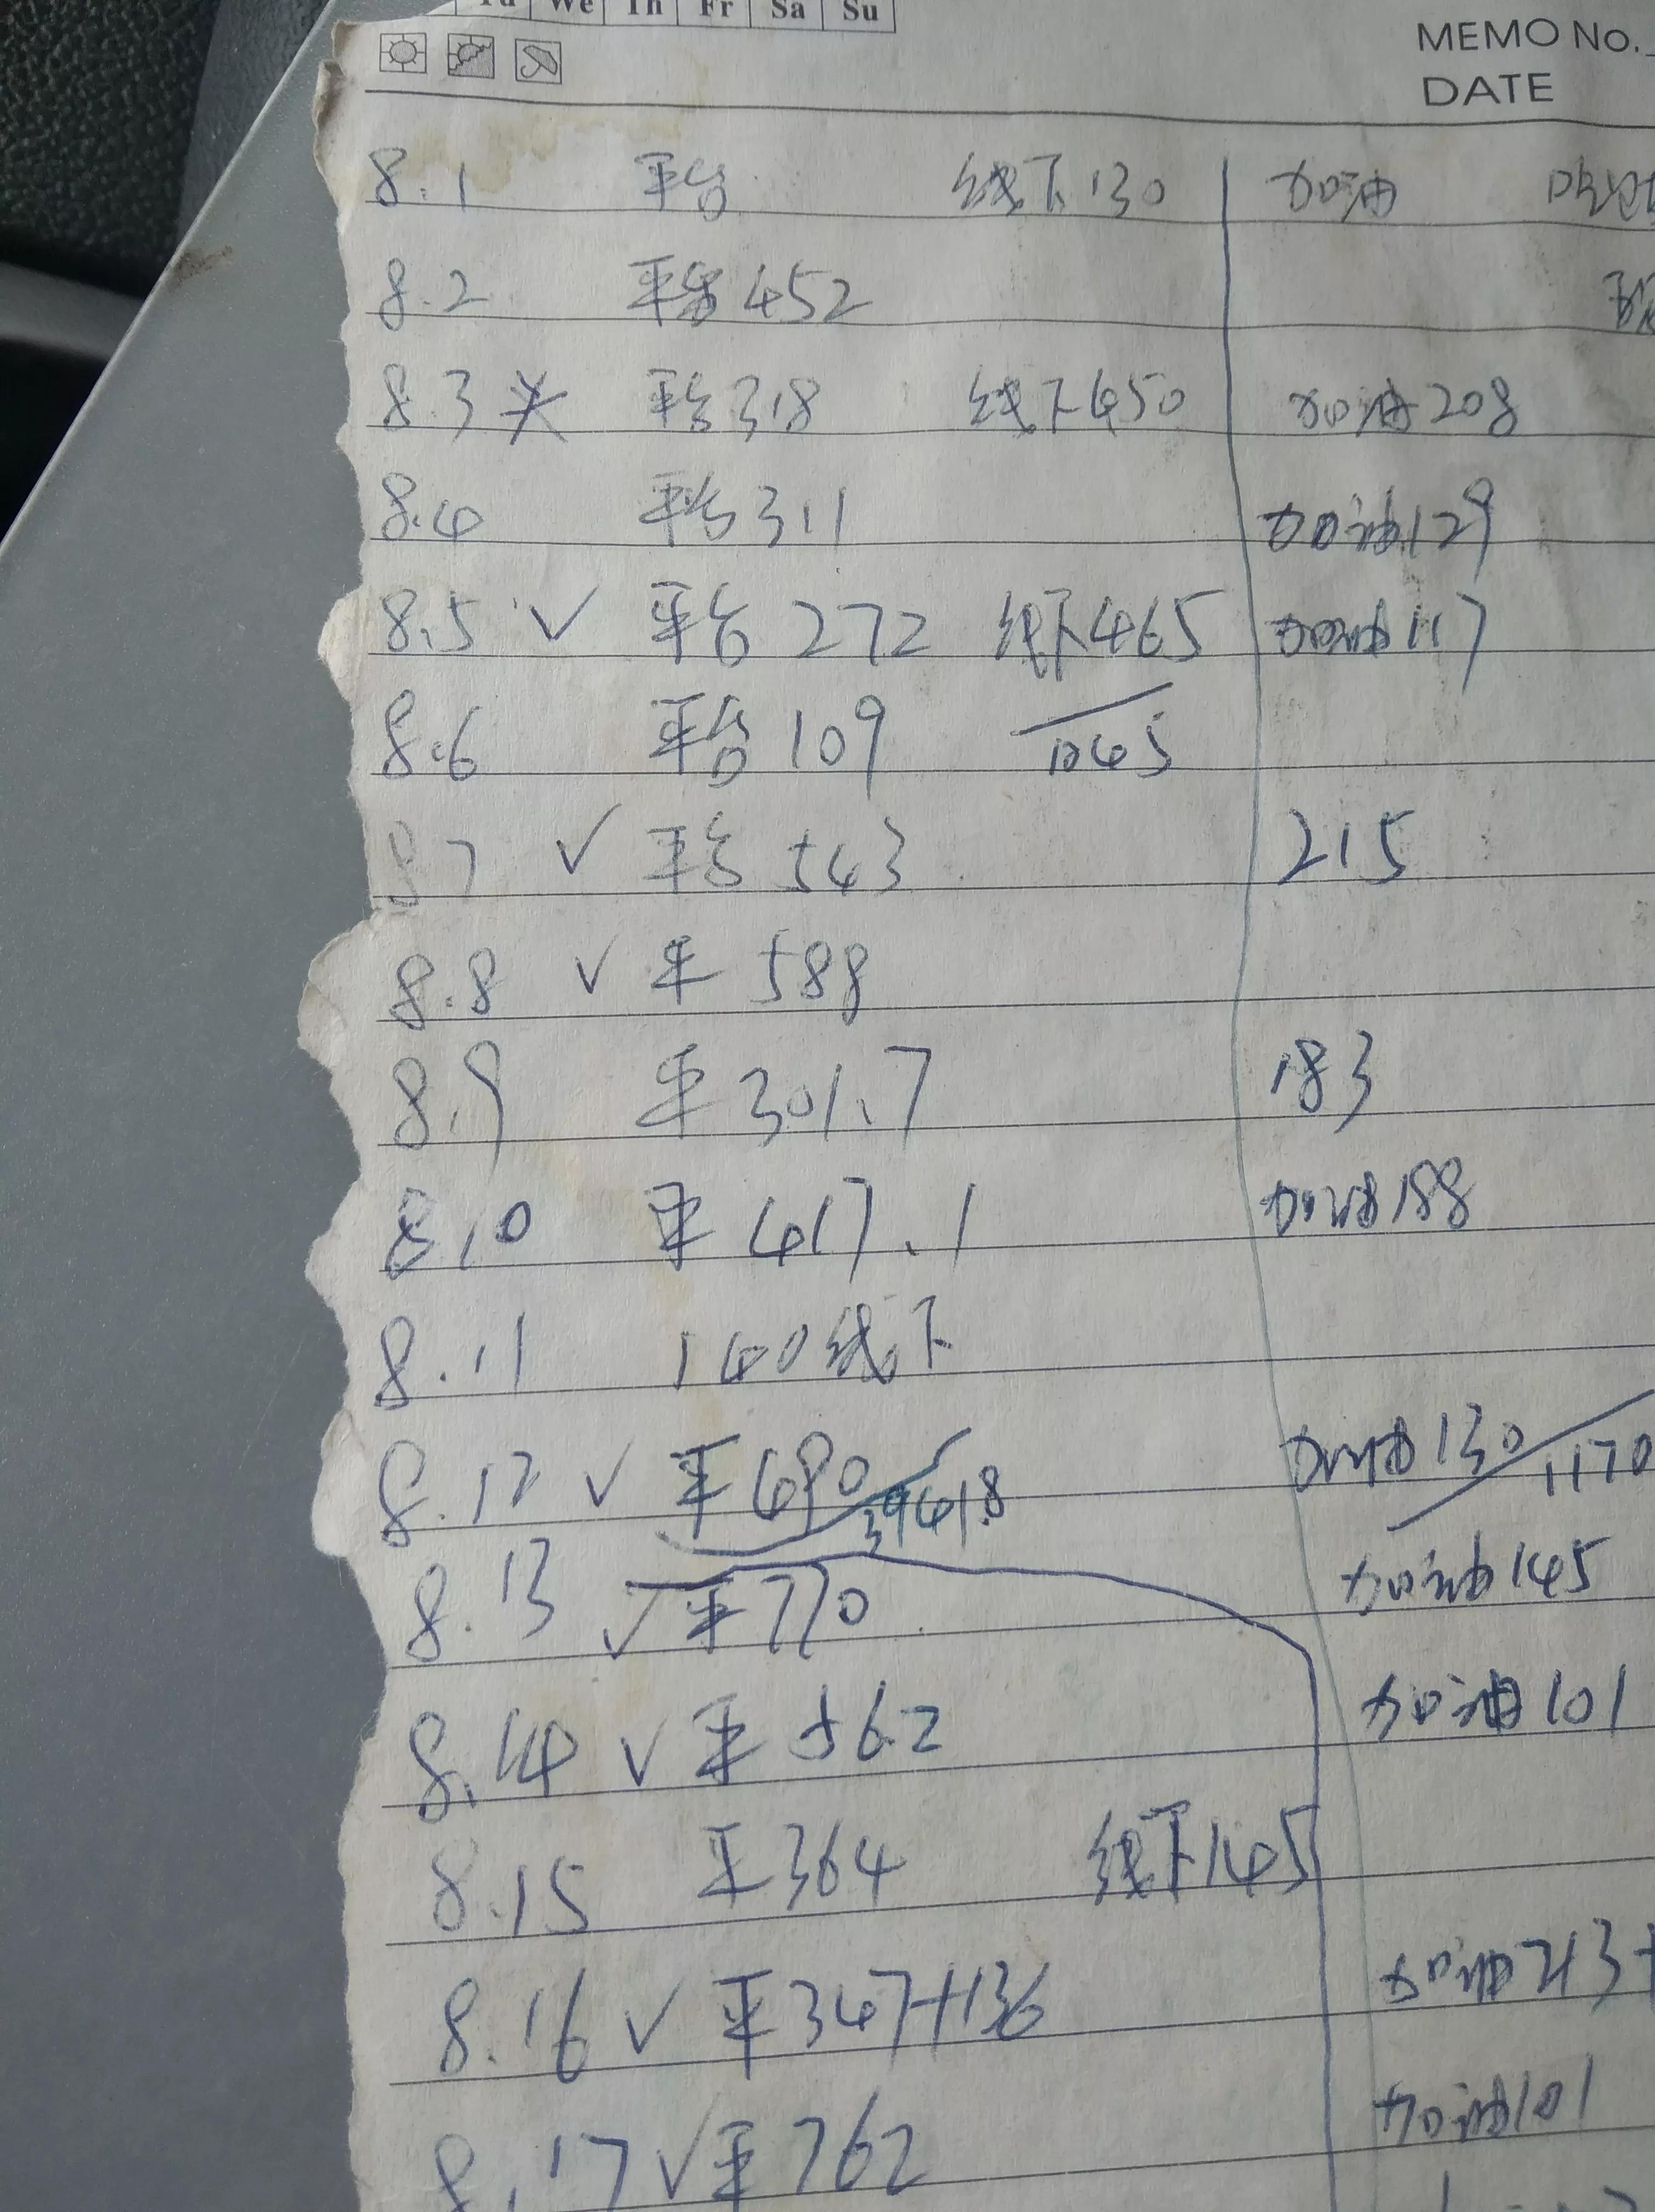 We Th Fr Sa Su
MEMO No.
DATE
8.1 平台 线下130 加油
8.2 平台452
8.3 平台318 线下450 加油208
8.4 平台311 加油129
8.5 ✓ 平台 272 线下465 加油117
8.6 平台 109 1045
8.7 ✓ 平台 543 215
8.8 ✓ 平 588
8.9 平 301.7 183
8.10 平 417.1 加油188
8.11 140线下
8.12 ✓ 平690 3941.8 加油130 1170
8.13 ✓ 平770 加油145
8.14 ✓ 平 562 加油101
8.15 平364 线下145
8.16 ✓ 平347+136 加油213+
8.17 ✓ 平762 加油101